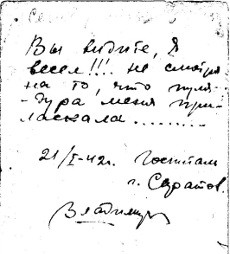 Вы видите, я
весел!!! не смотря
на то, что пуля-
-дура меня при-
ласкала.........
21/I-42г. Госпиталь
г. Саратов.
Владимир